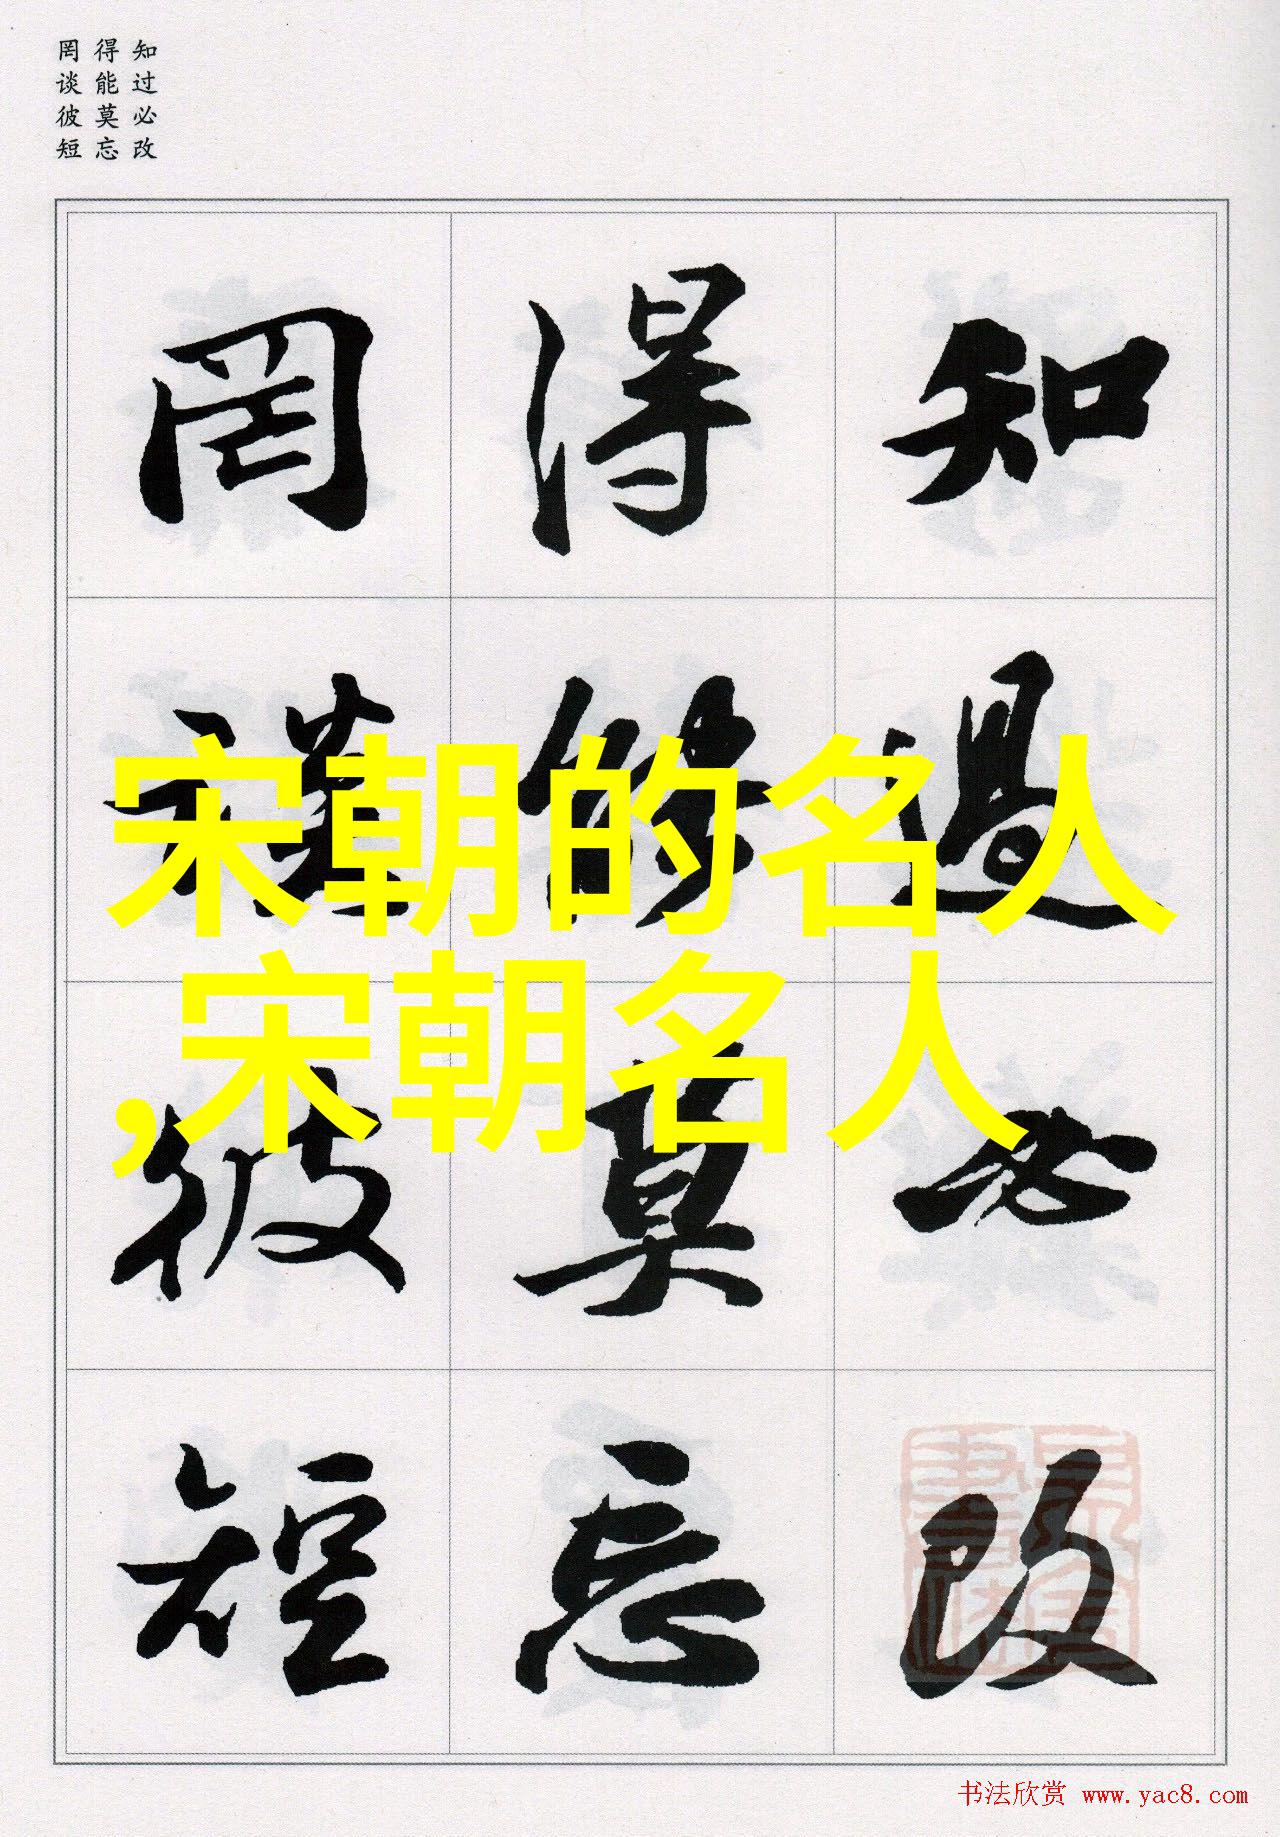 知过必改
得能莫忘
罔谈彼短
知過必改
得能莫忘
罔談彼短
宋朝的名人
,宋朝名人
书法欣赏 www.yac8.com